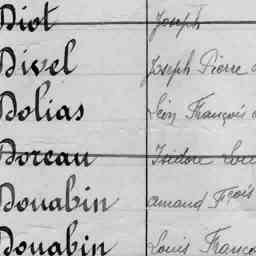 Diot Joseph
Divel Joseph Pierre
Dolias Léon François
Doreau Isidore Loui
Douabin Amand Fçois
Douabin Louis Franço